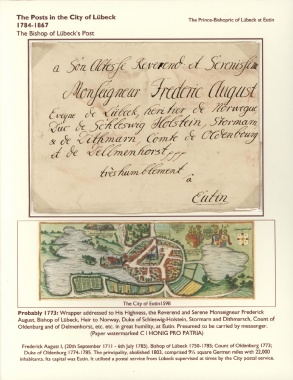 The Posts in the City of Lübeck
1784-1867
The Bishop of Lübeck's Post
The Prince-Bishopric of Lübeck at Eutin
a Son Altesse Reverend et Serenissime
Monseigneur Frederic August
Eveque de Lübeck, heritier de Norwegue
Duc de Schleswig Holstein, Stormarn
& de Dithmarn, Comte de Oldenbourg
et de Dellmenhorst
très humblement
à
Eutin
The City of Eutin 1598
Probably 1773: Wrapper addressed to His Highness, the Reverend and Serene Monseigneur Frederick
August, Bishop of Lübeck, Heir to Norway, Duke of Schleswig-Holstein, Stormarn and Dithmarsch, Count of
Oldenburg and of Delmenhorst, etc. etc. in great humility, at Eutin. Presumed to be carried by messenger.
(Paper watermarked C I HONIG PRO PATRIA)
Frederick August I, (20th September 1711 - 6th July 1785), Bishop of Lübeck 1750-1785; Count of Oldenburg 1773;
Duke of Oldenburg 1774-1785. The principality, abolished 1803, comprised 9½ square German miles with 22,000
inhabitants. Its capital was Eutin. It utilised a postal service from Lübeck supervised at times by the City postal service.